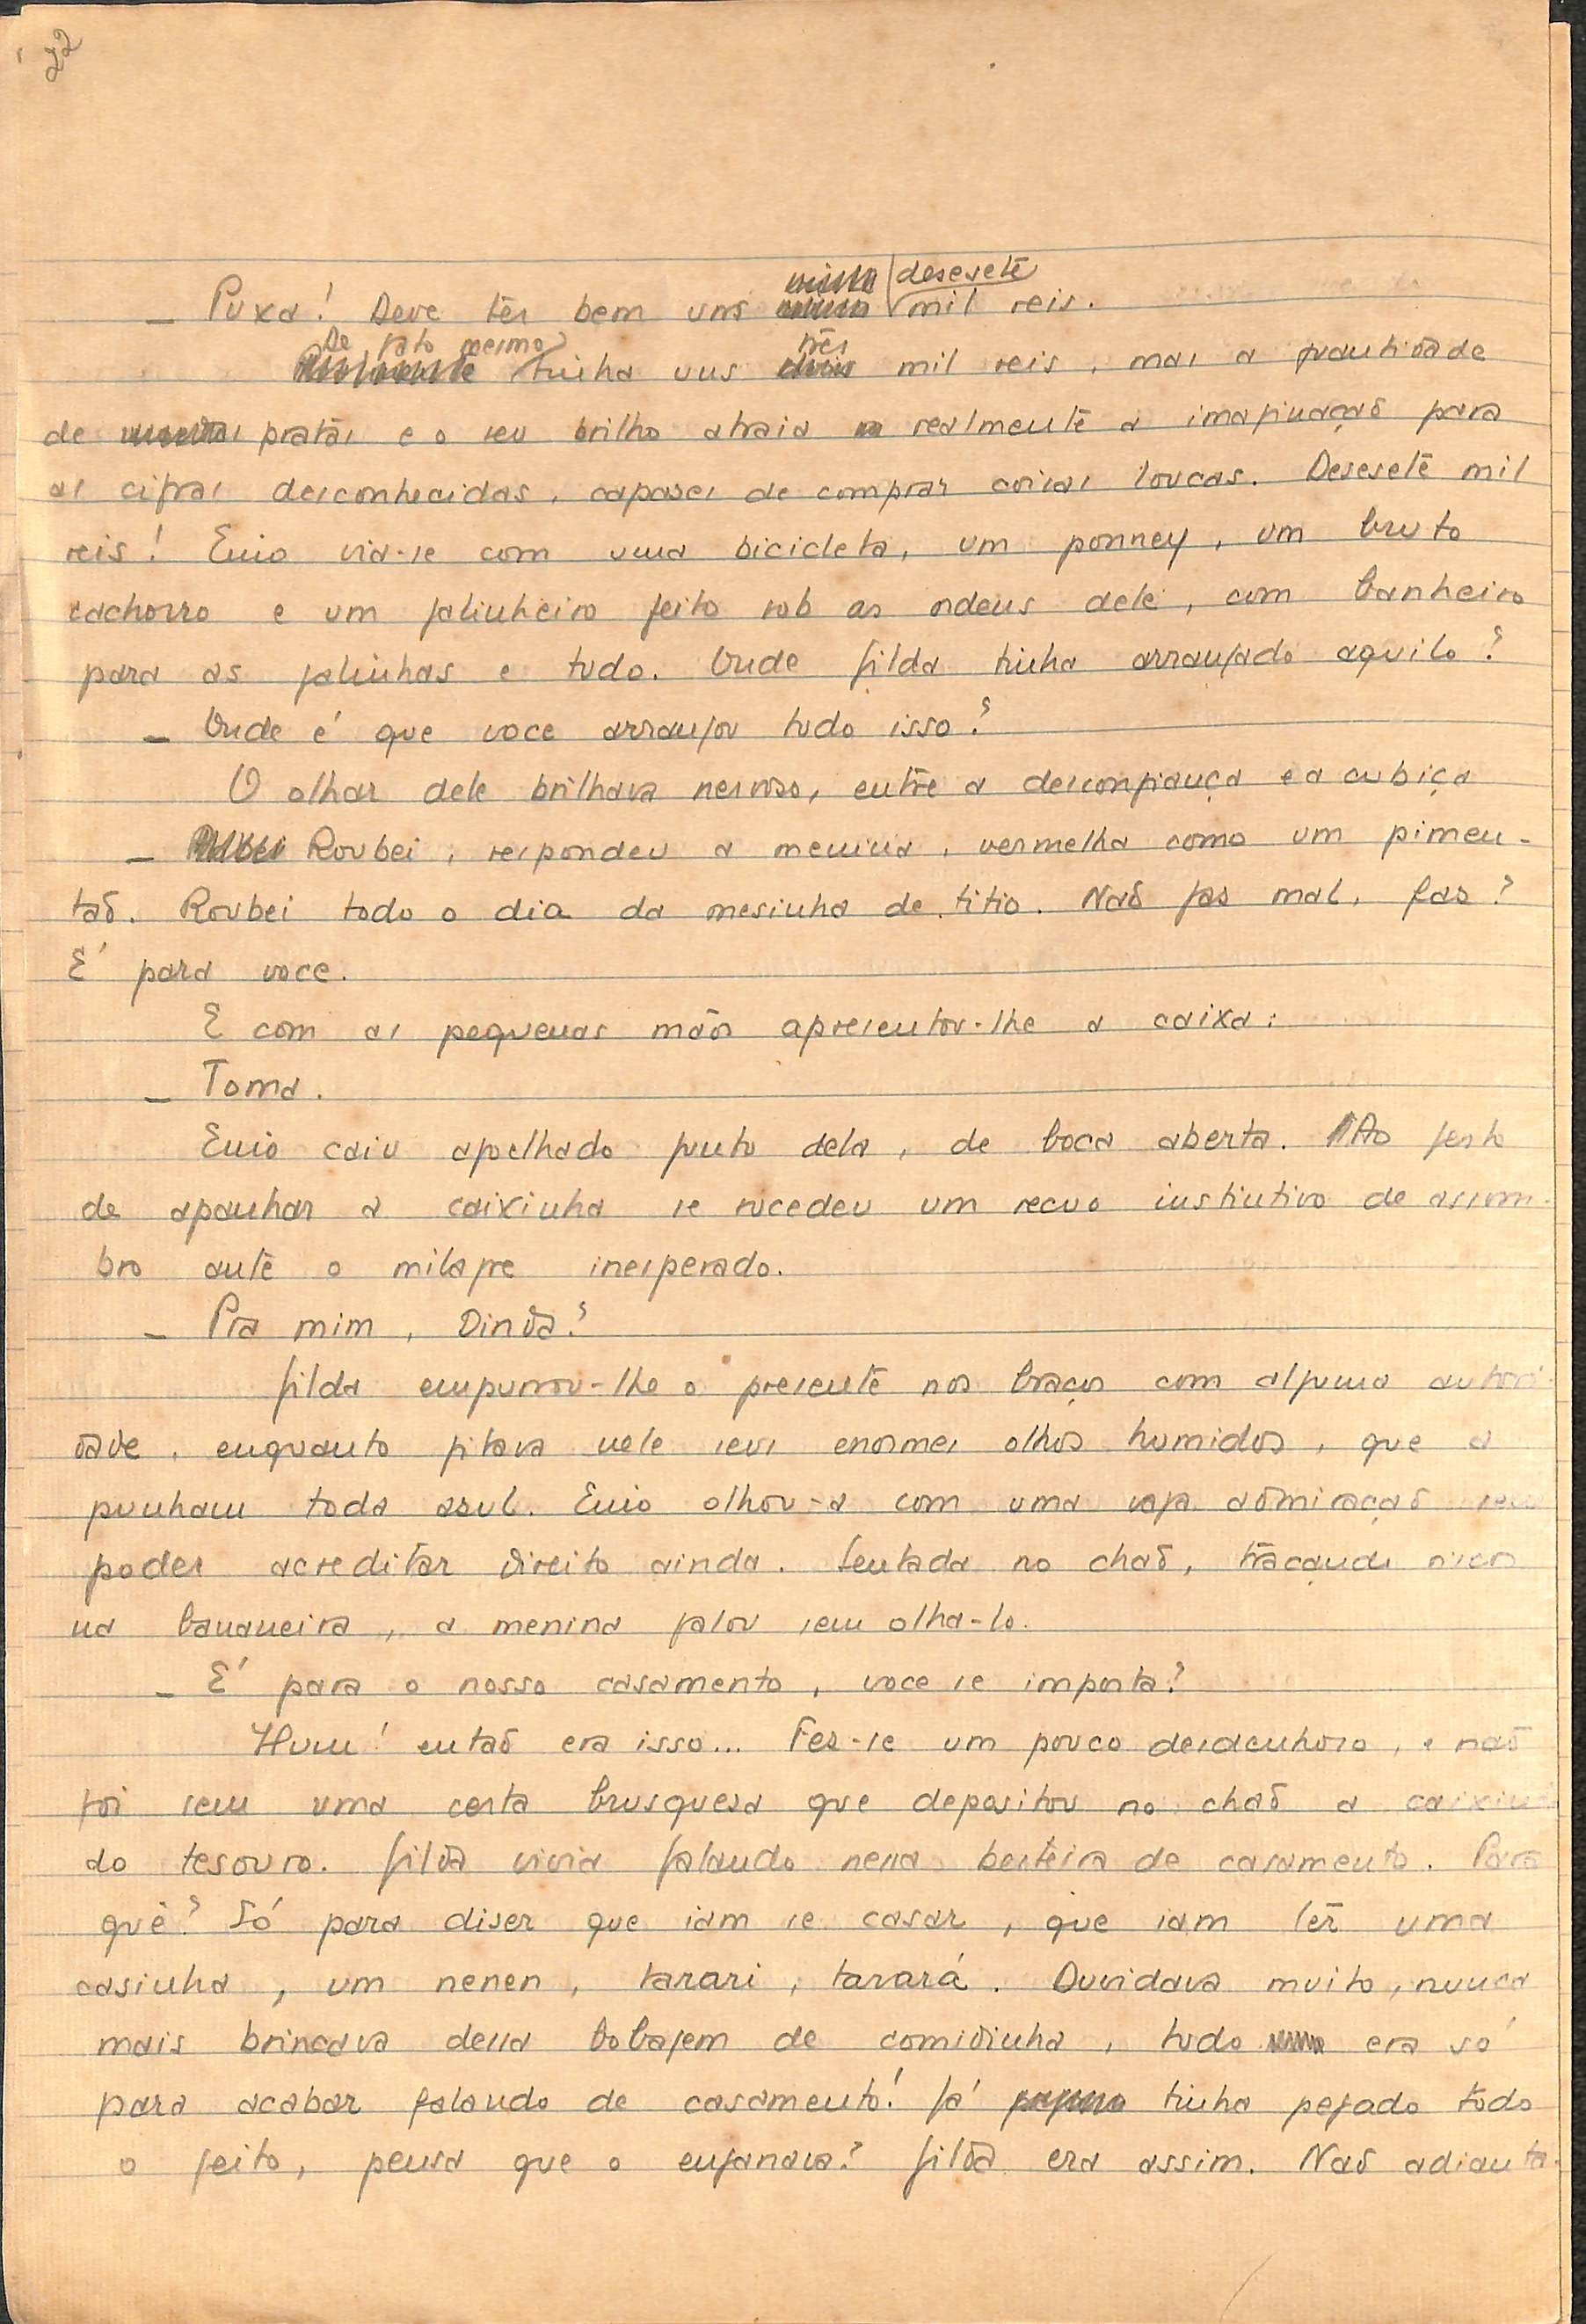 22
— Puxa! Deve ter bem uns desesete mil reis.
De fato mesmo tinha uns três mil reis, mas a quantidade
de pratas e o seu brilho atraia realmente a imaginação para
as cifras desconhecidas, capases de comprar coisas loucas. Desesete mil
reis! Enio via-se com uma bicicleta, um ponney, um bruto
cachorro e um galinheiro feito sob as ordens dele, com banheiro
para as galinhas e tudo. Onde Gilda tinha arranjado aquilo?
— Onde é que voce arranjou tudo isso?
O olhar dele brilhava nervoso, entre a desconfiança e a cubiça
— Roubei, respondeu a menina, vermelha como um pimen-
tão. Roubei todo o dia da mesinha de titio. Não fas mal, fas?
É para voce.
E com as pequenas mãos apresentou-lhe a caixa:
— Toma.
Enio caiu ajoelhado junto dela, de boca aberta. Ao gesto
de apanhar a caixinha se sucedeu um recuo instintivo de assom-
bro ante o milagre inesperado.
— Pra mim, Dinda?
Gilda empurrou-lhe o presente nos braços com alguma autori-
dade, enquanto fitava nele seus enormes olhos humidos, que a
punham toda asul. Enio olhou-a com uma vaga admiração sem
poder acreditar direito ainda. Sentada no chão, traçando
na bananeira, a menina falou sem olha-lo.
— É para o nosso casamento, voce se importa?
Hum! então era isso... Fes-se um pouco desdenhoso, e não
foi sem uma certa brusquesa que depositou no chão a caixinha
do tesouro. Gilda vivia falando nessa besteira de casamento. Para
quê? Só para diser que iam se casar, que iam ter uma
casinha, um nenen, tarari, tarará. Duvidava muito, nunca
mais brincava dessa bobajem de comidinha, tudo era só
para acabar falando de casamento! Já tinha pegado todo
o jeito, pensa que o enganava? Gilda era assim. Não adianta-